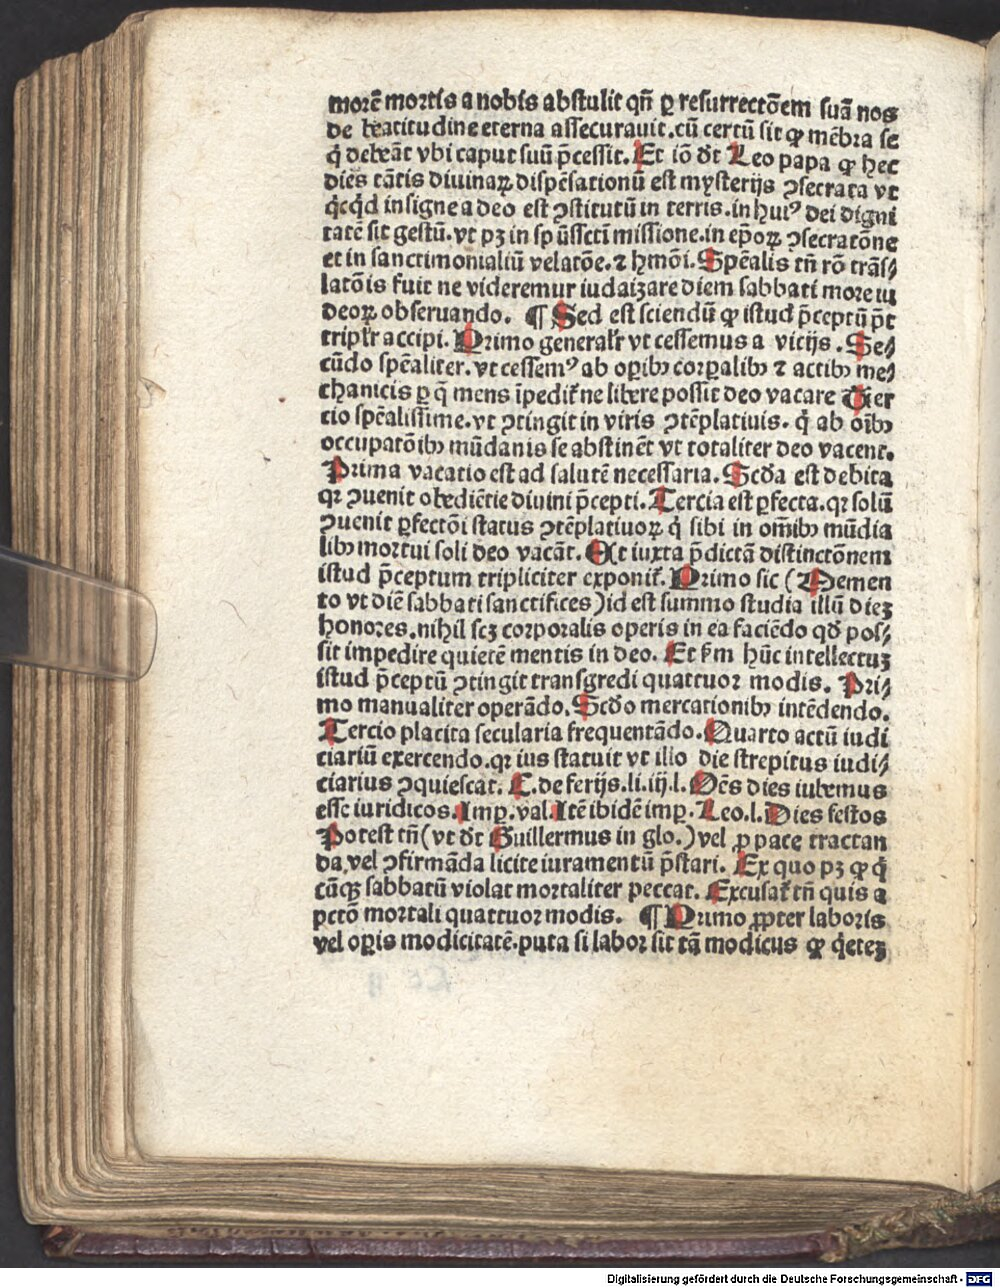 morē mortis a nobis abstulit qñ ꝑ resurrectōem suā nos
de beatitudine eterna assecurauit.cū certū sit ꝙ mēbra se
q̄ debeāt vbi caput suū p̄cessit. Et iō dt̄ Leo papa ꝙ hec
dies tātis diuinaꝝ dispēsationū est mysterijs ꝯsecrata vt
q̇cq̇d insigne adeo est ꝯstitutū in terris.in huiꝰ dei digni
tatē sit gestū.vt pꝫ in sp̄ussctī missione.in ep̄oꝝ ꝯsecratōne
et in sanctimonialiū velatōe.⁊ hmōi. Spēalis tñ rō trās⸗
latōis fuit ne videremur iudaizare diem sabbati more iu
deoꝝ obseruando. ¶ Sed est sciendū ꝙ istud p̄ceptū pt̄
triplr̄ accipi. Primo generalr̄ vt cessemus a vicijs. Se⸗
cūdo spēaliter.vt cessemꝰ ab oꝑibꝫ corꝑalibꝫ ⁊ actibꝫ me⸗
chanicis ꝑ q̄ mens īpedit᷑ ne libere possit deo vacare Ter
cio spēalissime.vt ꝯtingit in viris ꝯtēplatiuis. q̇ ab oībꝫ
occupatōibꝫ mūdanis se abstinēt vt totaliter deo vacent.
Prima vacatio est ad salutē necessaria. Scd̄a est debita
qꝛ ꝯuenit obediētie diuini p̄cepti. Tercia est ꝑfecta.qꝛ solū
ꝯuenit ꝑfectōi status ꝯtēplatiuoꝝ q̇ sibi in om̄ibꝫ mūdia
libꝫ mortui soli deo vacāt. Et iuxta p̄dictā distinctōnem
istud p̄ceptum tripliciter exponit᷑. Primo sic (Memen
to vt diē sabbati sanctifices)id est summo studia illū dieꝫ
honores.nihil scꝫ corporalis operis in ea faciēdo qd̄ pos⸗
sit impedire quietē mentis in deo. Et ẜm hūc intellectuꝫ
istud p̄ceptū ꝯtingit transgredi quattuor modis. Pri⸗
mo manualiter operādo. Scd̄o mercationibꝫ intēdendo.
Tercio placita secularia frequentādo. Quarto actū iudi
ciariū exercendo.qꝛ ius statuit vt illo die strepitus iudi⸗
ciarius ꝯquiescat. C. de ferijs.li.iij.l. Oēs dies iubemus
esse iuridicos. Imꝑ.val. Itē ibidē imꝑ. Leo.l. Dies festos
Potest tñ(vt dt̄ Guillermus in glo.)vel ꝓ pace tractan
da.vel ꝯfirmāda licite iuramentū p̄stari. Ex quo pꝫ ꝙ q̇
cūqꝫ sabbatū violat mortaliter peccat. Excusat᷑ tñ quis a
pctō mortali quattuor modis. ¶ Primo ꝓpter laboris
vel oꝑis modicitatē.puta si labor sit tā modicus ꝙ q̇eteꝫ